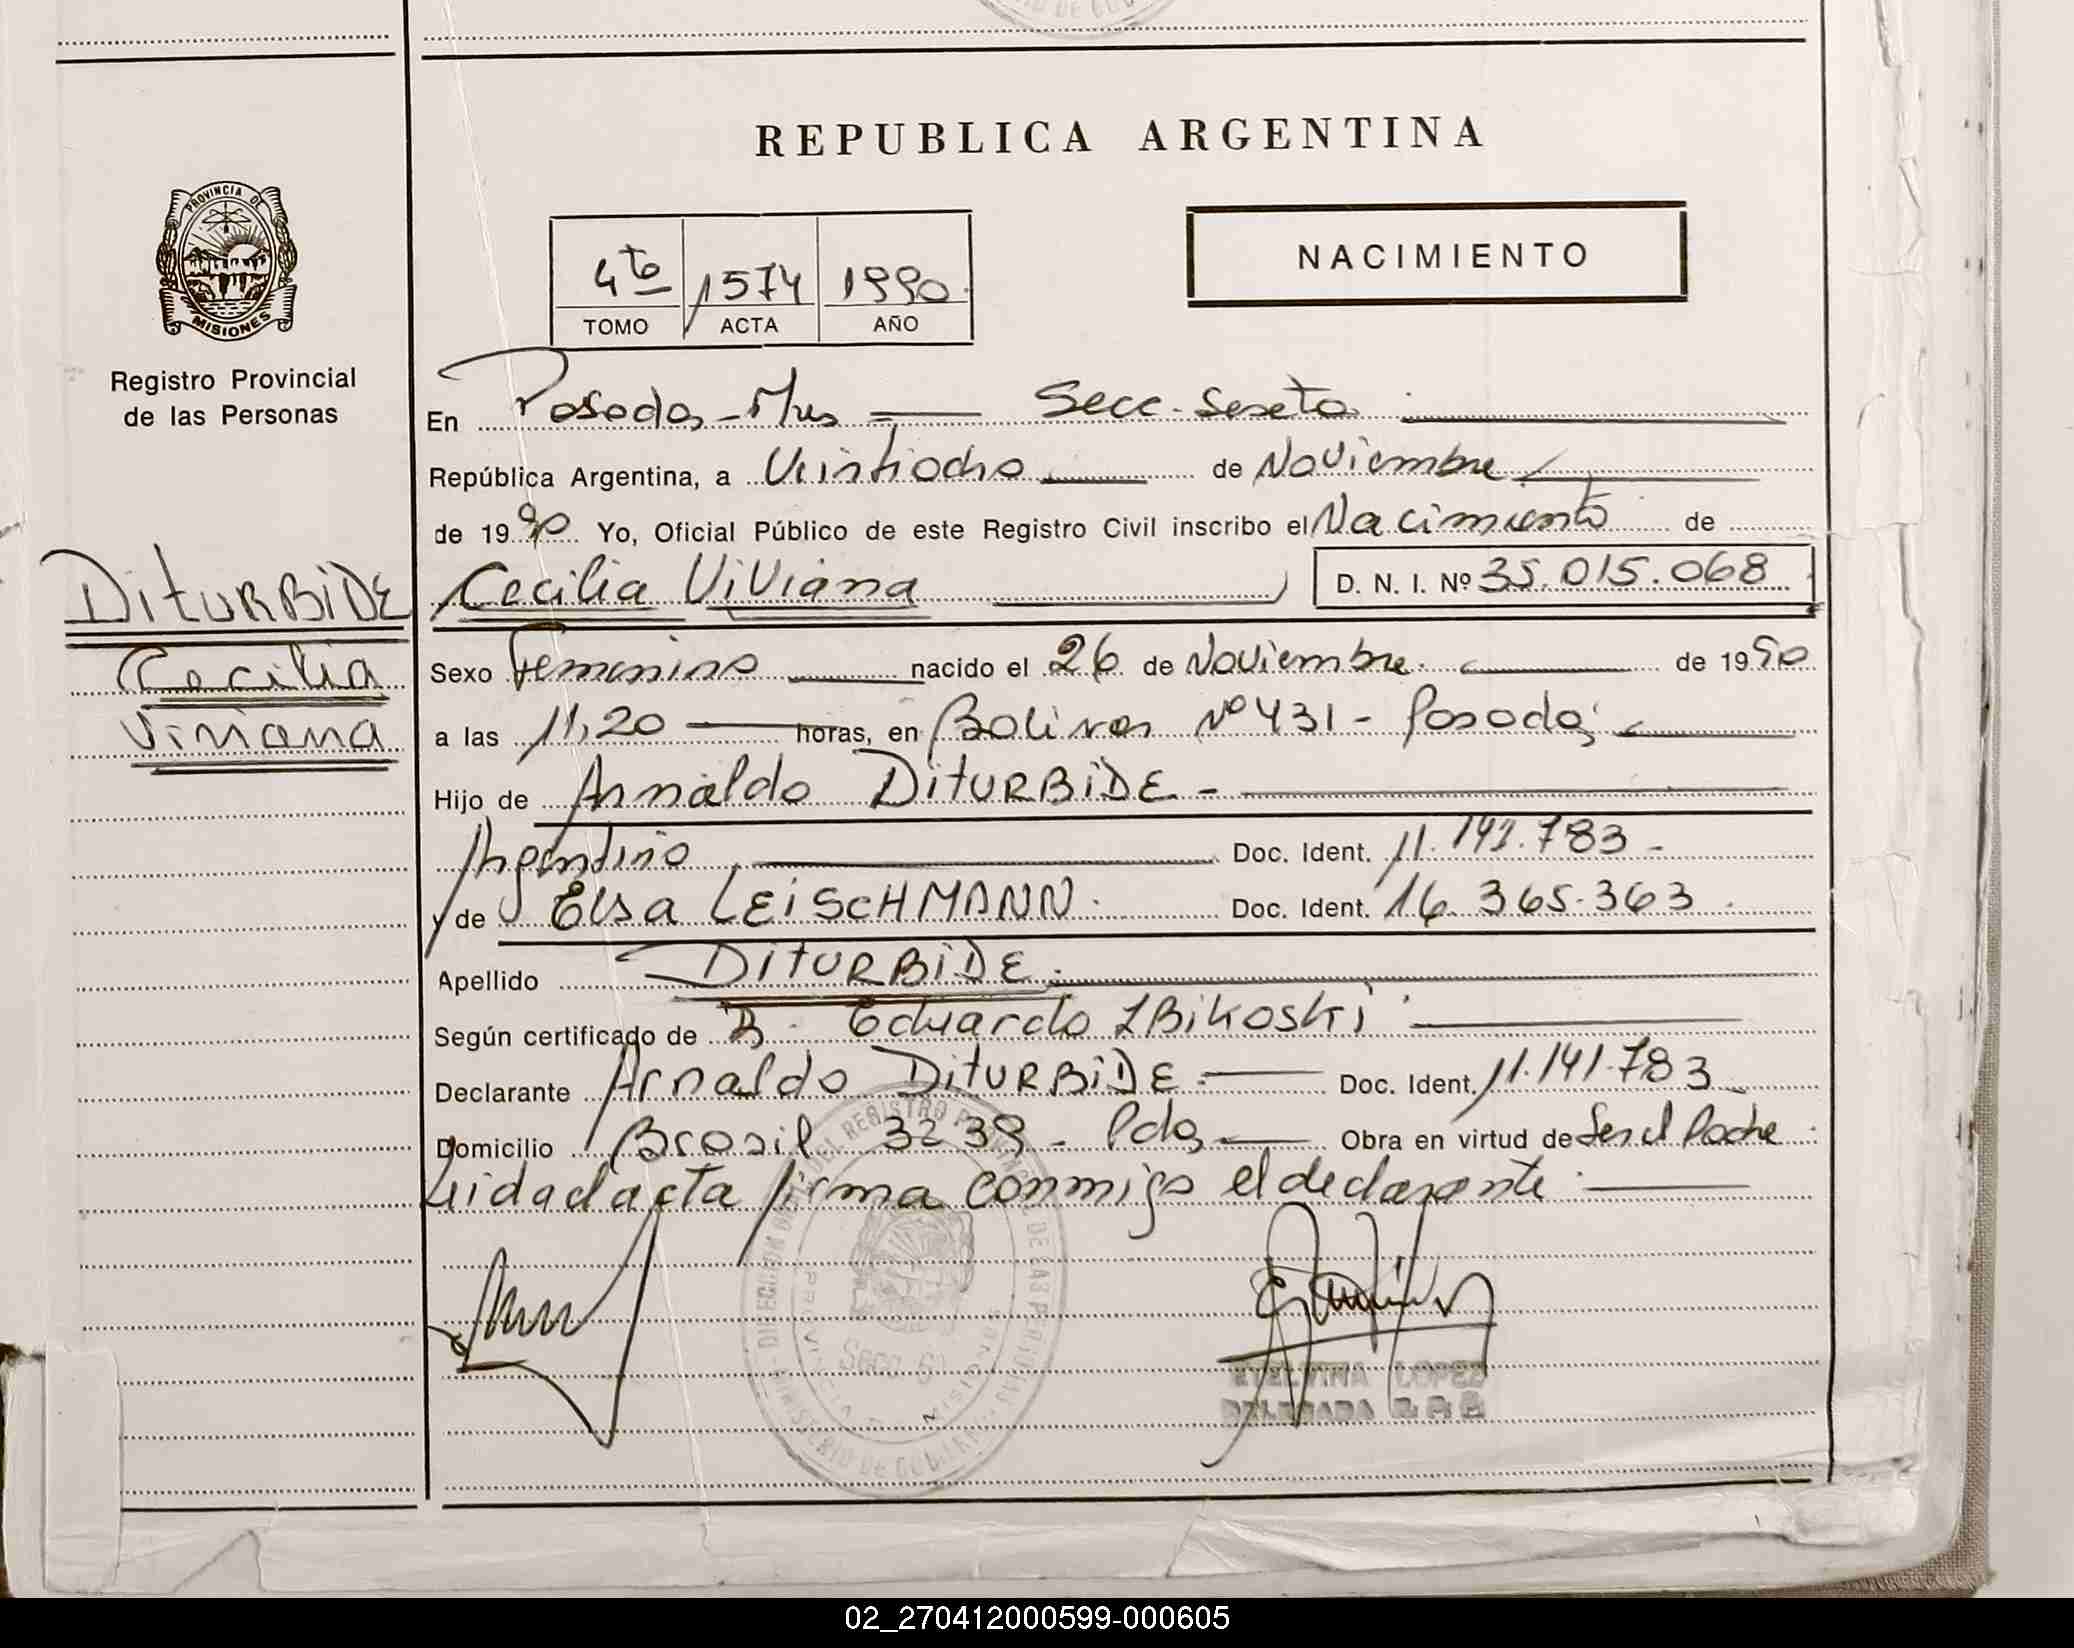 REPUBLICA ARGENTINA
PROVINCIA DE
MISIONES
Registro Provincial
de las Personas
4to 1574 1990
TOMO ACTA AÑO
NACIMIENTO
En Posadas - Mnes Secc. Sexta
República Argentina, a Veintiocho de Noviembre
de 1990 Yo, Oficial Público de este Registro Civil inscribo el Nacimiento de
DiTURBiDE
Cecilia
Viviana
Cecilia Viviana D. N. I. Nº 35.015.068
Sexo Femenino nacido el 26 de Noviembre de 1990
a las 11,20 horas, en Bolivar Nº 431 - Posadas
Hijo de Arnaldo DiTURBiDE -
Argentino Doc. Ident. 11.141.783 -
y de Elsa LEiSCHMANN. Doc. Ident. 16.365.363
Apellido DiTURBiDE.
Según certificado de D. Eduardo ZBikoski
Declarante Arnaldo DiTURBiDE Doc. Ident. 11.141.783
Domicilio Brasil 3239 - Pdas Obra en virtud de Ser el Padre
Leida el acta firma conmigo el declarante
ETELVINA LOPEZ
DELEGADA
02_270412000599-000605